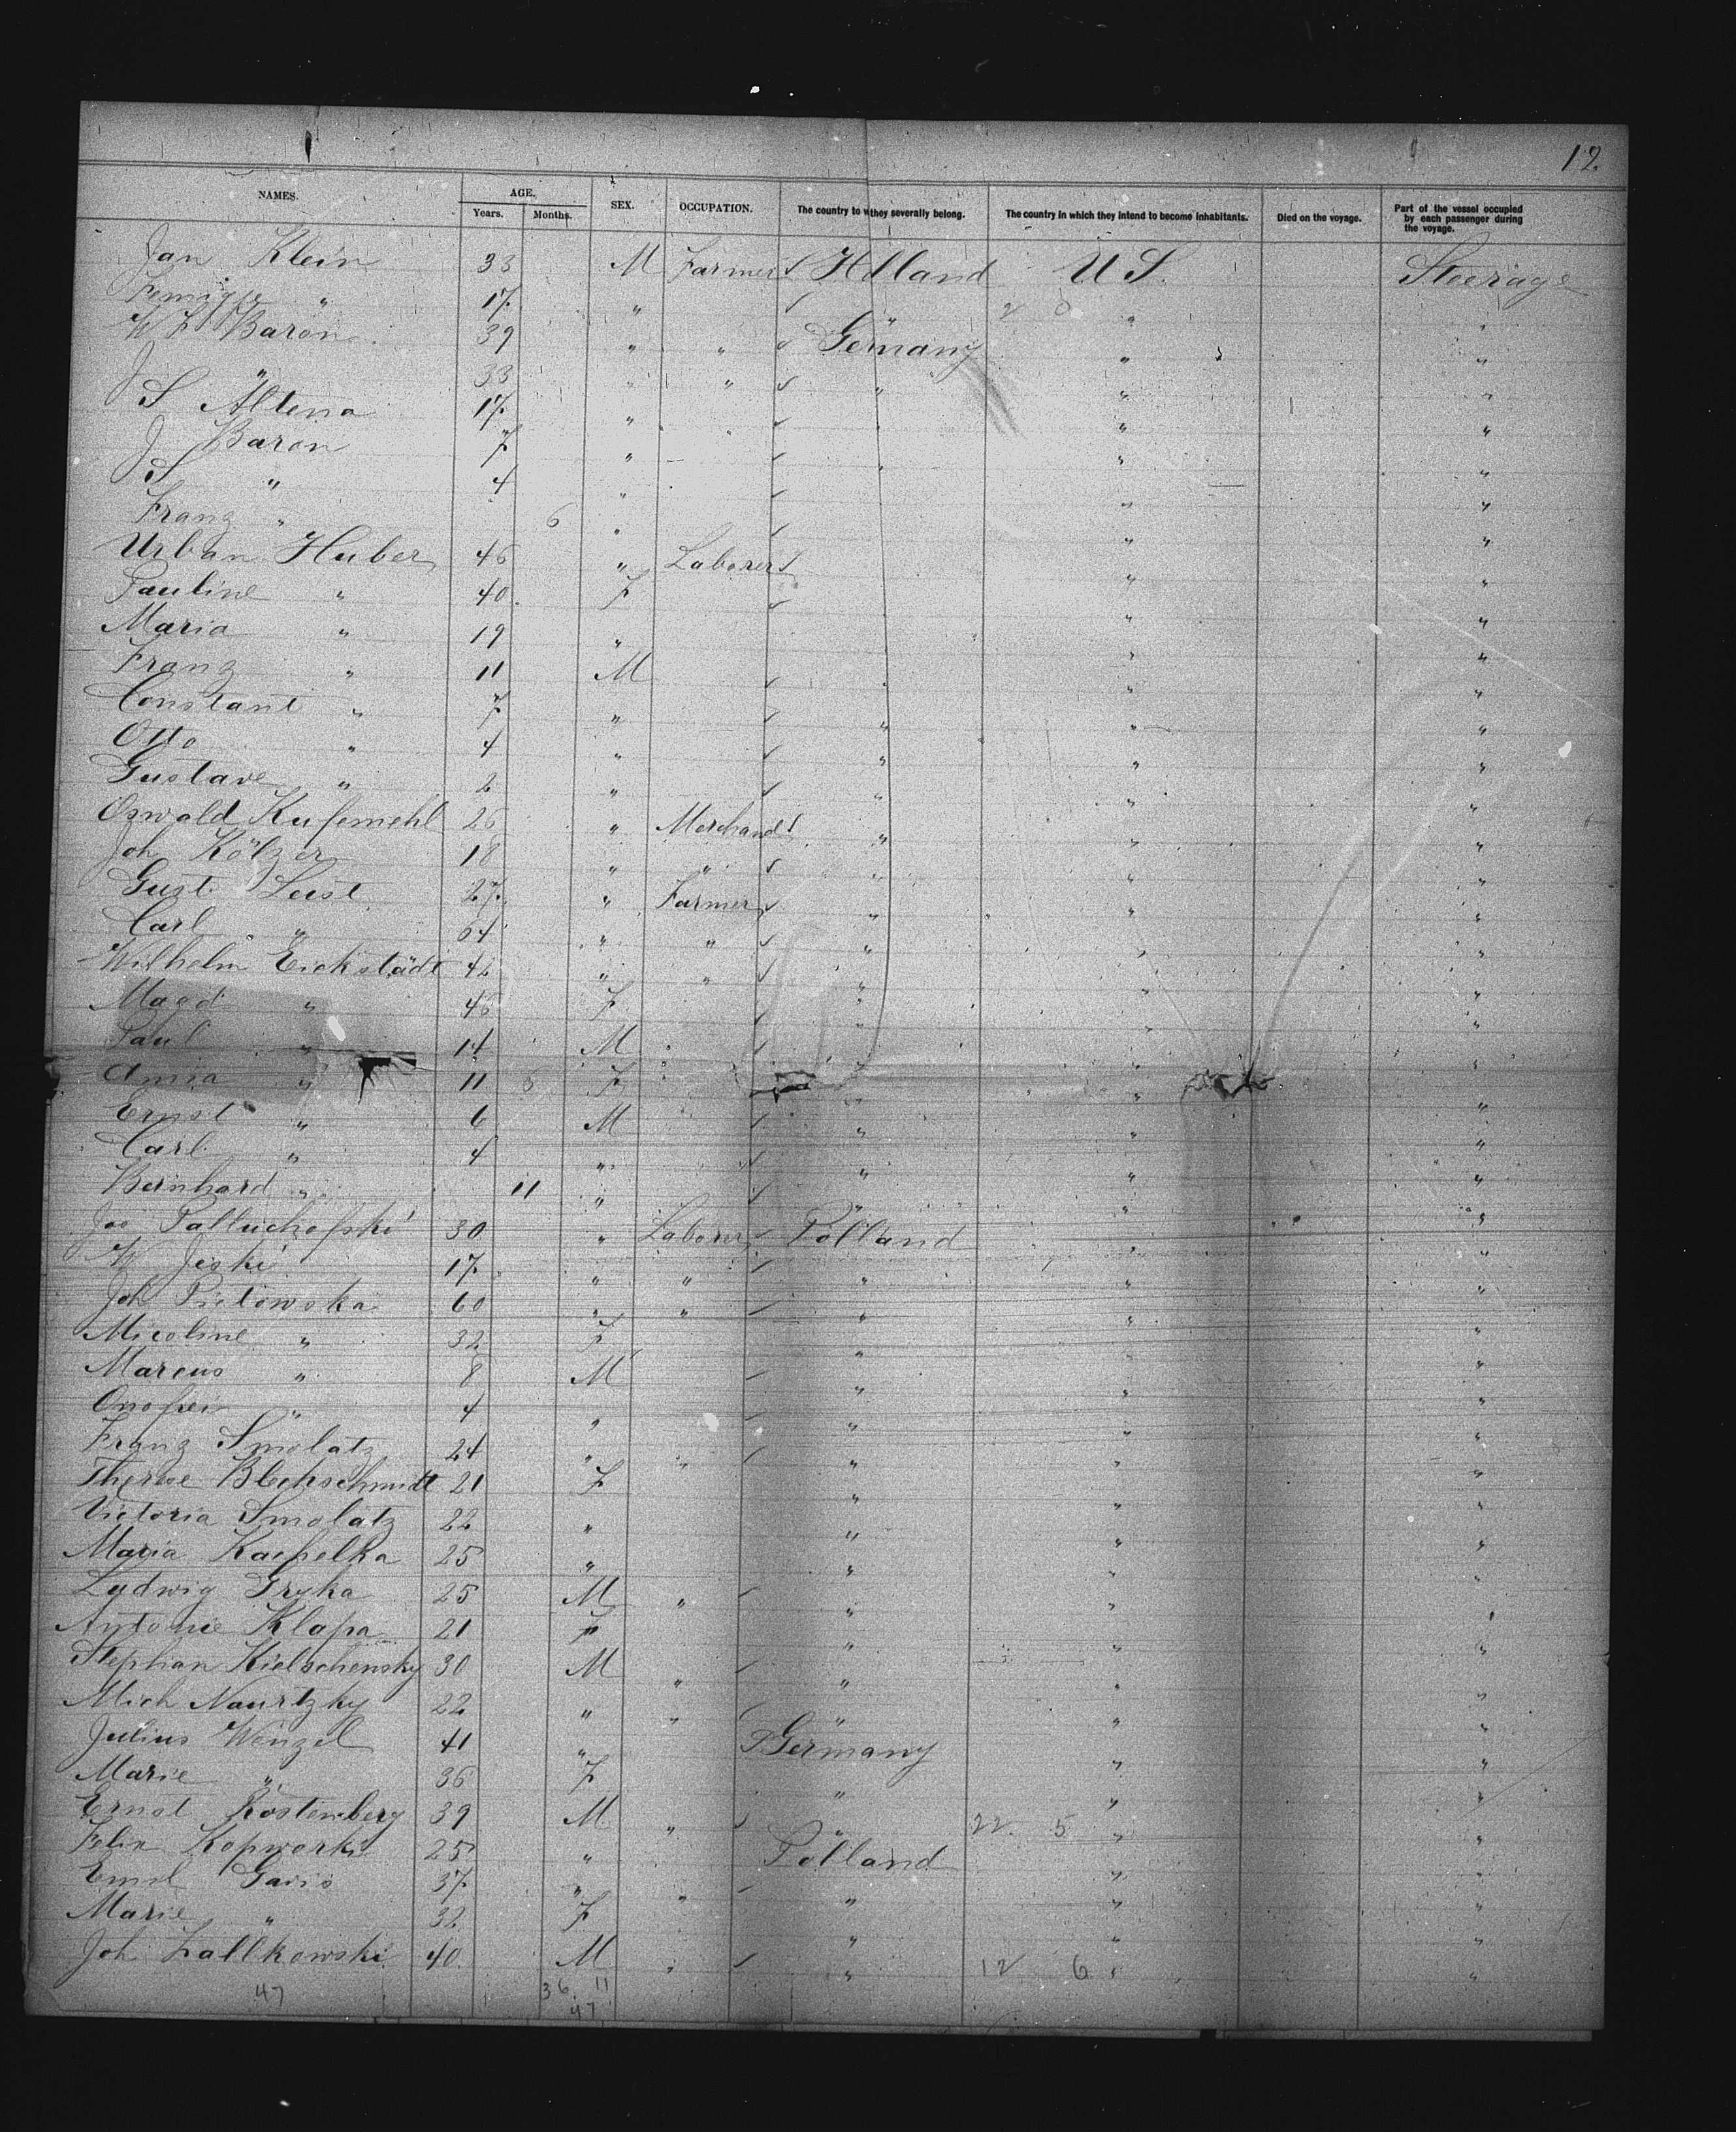 12
NAMES. AGE. Years. Months. SEX. OCCUPATION. The country to w they severally belong. The country in which they intend to become inhabitants. Died on the voyage. Part of the vessel occupied by each passenger during the voyage.
Jan Klein 33 M Farmer Holland U S. Steerage
" 17 " " " "
Baron 39 " " Germany " "
J " 33 " " " " "
S Altena 17 " " " " "
J Baron 7 " " " "
S " 4 " " "
Franz " 6 " " "
Urban Huber 46 " Laborer " "
Pauline " 40 F " "
Maria " 19 " " "
Franz " 11 M " "
Constant " 7 " " " "
Otto " 4 " " " "
Gustave " 2 " " " "
Oswald Kufemehl 26 " Merchand " " "
Joh Kölzer 18 " " " " "
Gust Leist 27 " Farmer " " "
Carl " 64 " " " " "
Wilhelm Eickstädt 42 " " " " "
Magd " 46 F " " "
Paul " 14 M " " "
Anna " 11 F " " "
Ernst " 6 M " " "
Carl " 4 " " " "
Bernhard " 11 " " " "
Jos Palluchofski 30 " Laborer Polland " "
W Jeski 17 " " " " "
Joh Pietowska 60 " " " " "
Micoline " 32 F " " "
Marcus " 8 M " " "
Onofrei " 4 " " " "
Franz Smolatz 24 " " " " "
Therese Blechschmidt 21 F " " "
Victoria Smolatz 22 " " " "
Maria Kachelka 25 " " " "
Ludwig Gryka 25 M " " " "
Antonie Klapa 21 F " " "
Stephan Kielschensky 30 M " " " "
Mich Naurtzky 22 " " " " "
Julius Wenzel 41 " Germany " "
Marie " 36 F " " "
Ernst Rostenberg 39 M " " 22 5 " "
Felix Kopworki 25 " Polland " "
Emil 37 " " " " "
Marie " 32 F " " "
Joh Lallkowski 40 M " " 12 6 " "
47 36 11
47